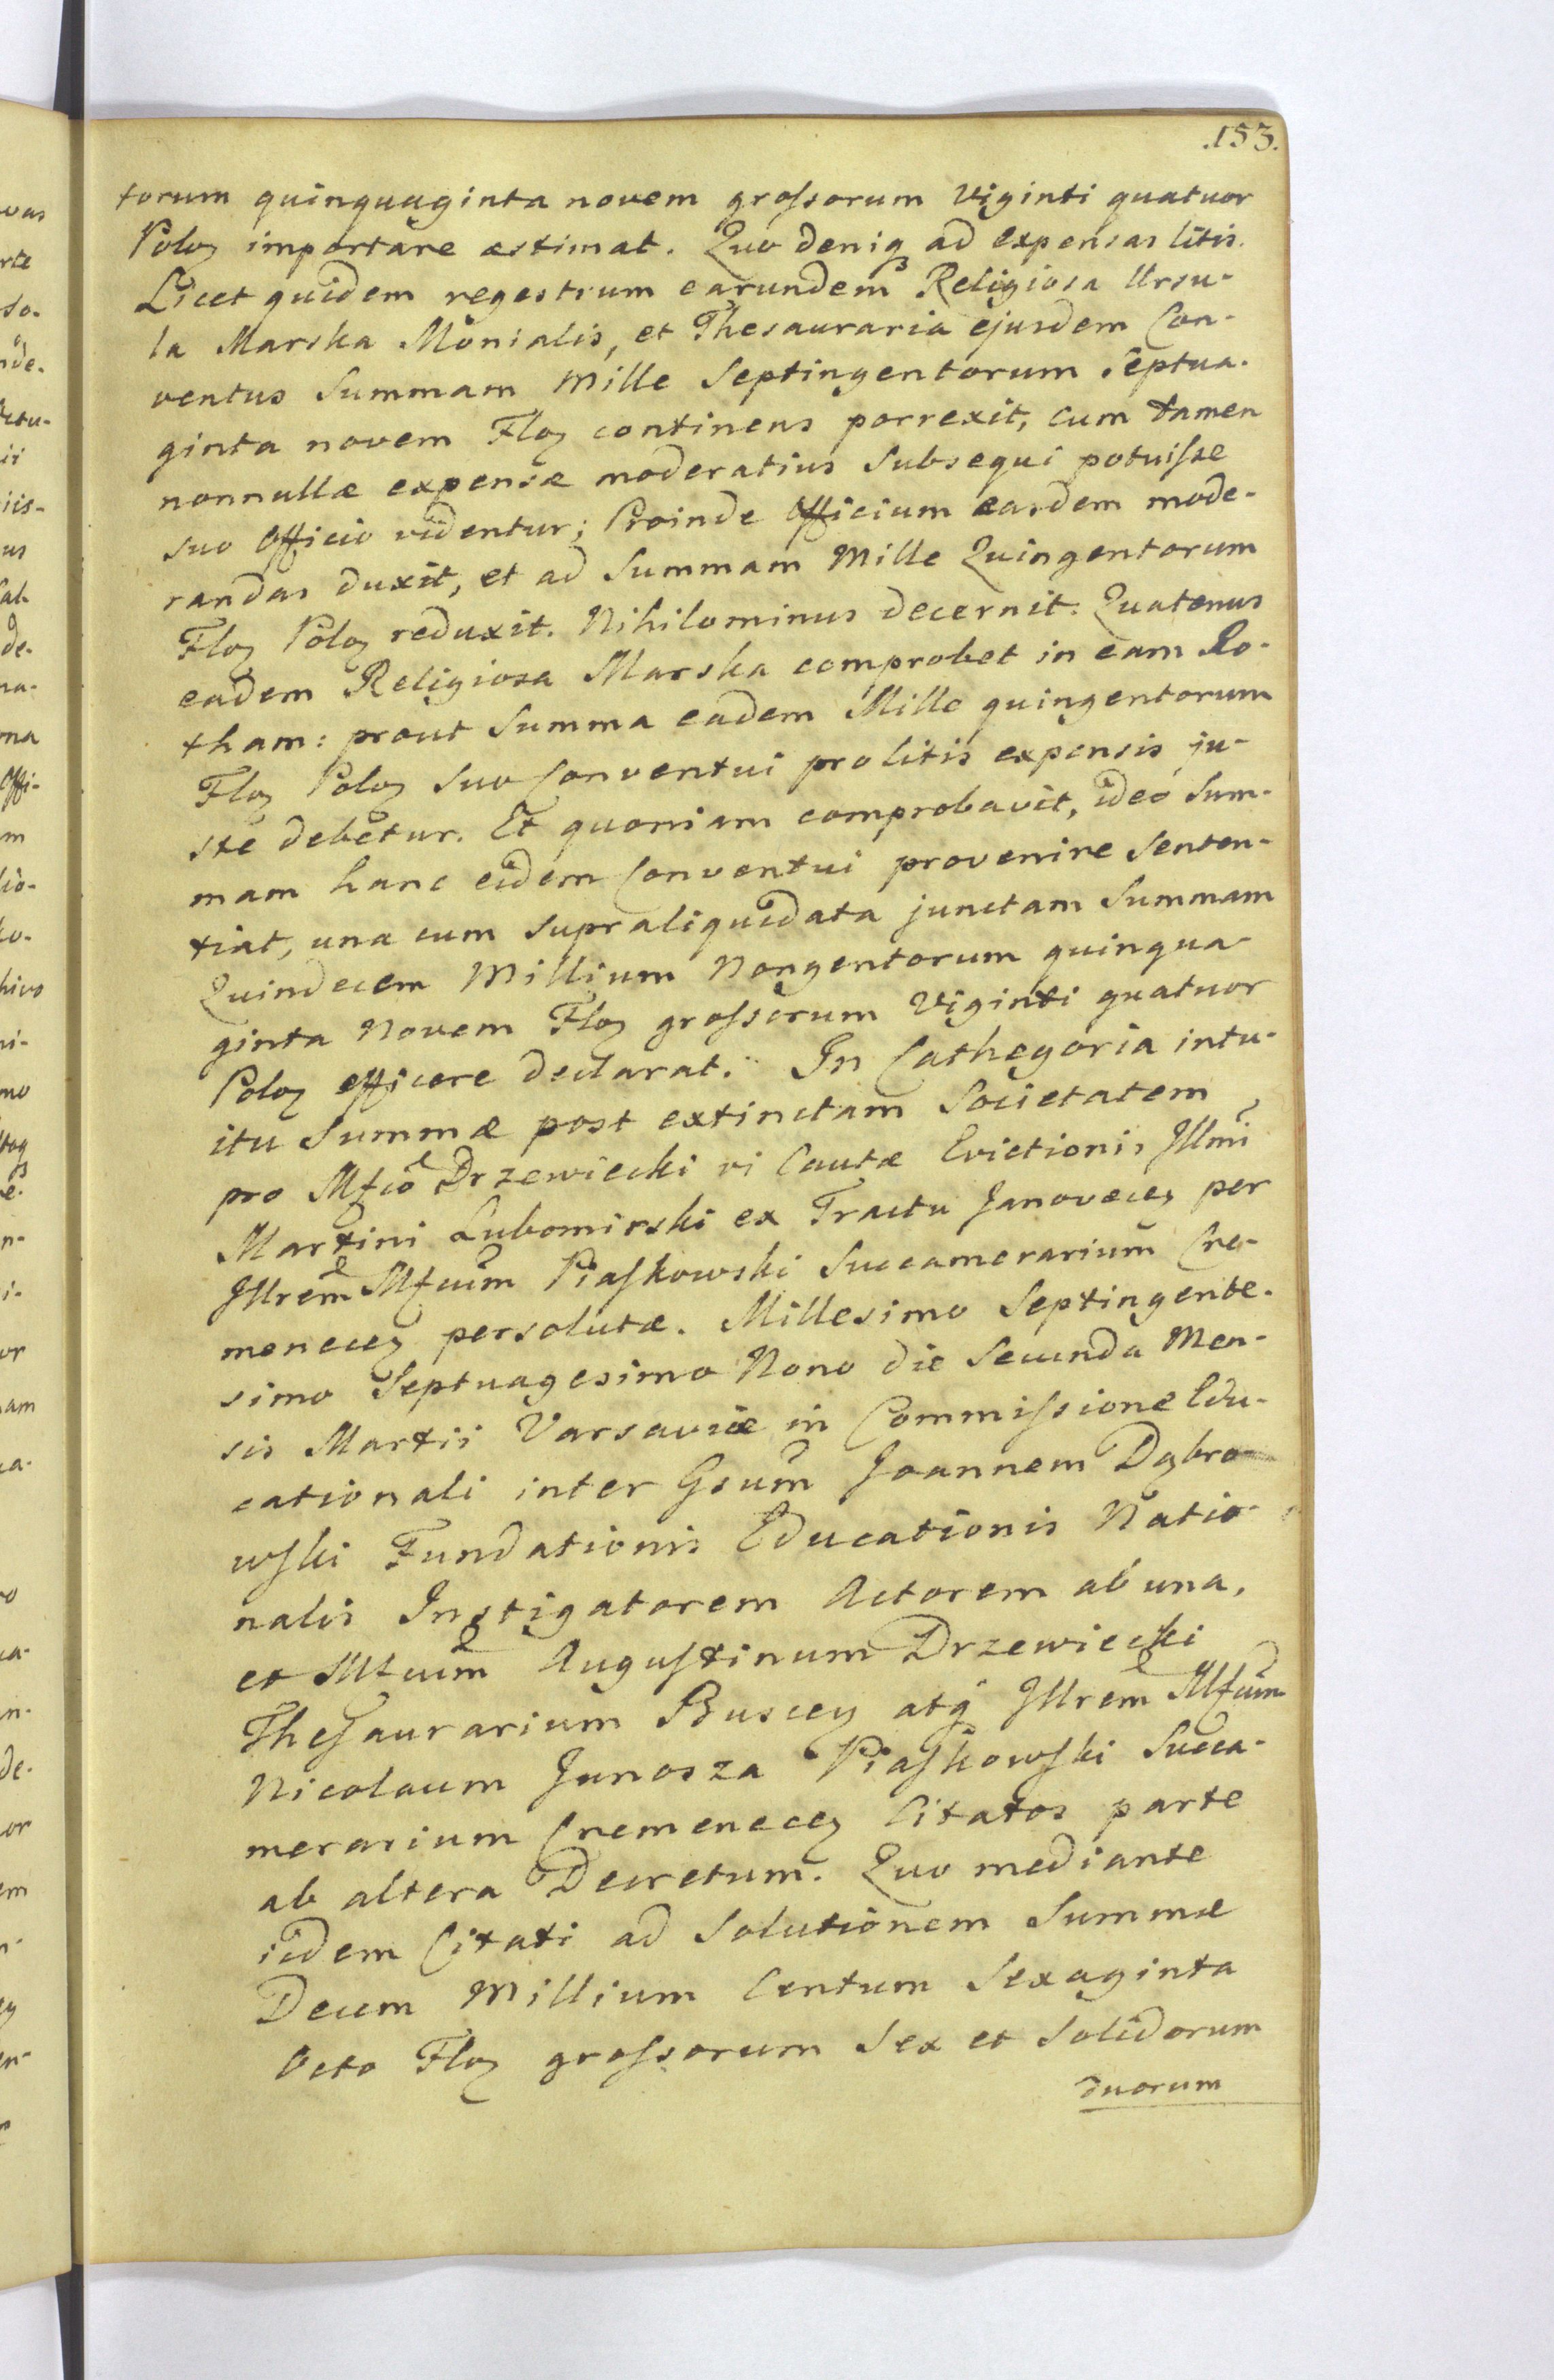 .153.
torum quinquaginta novem grossorum Viginti quatuor
Poloɀ importare æstimat. Quo deniqꝫ ad expensas litis.
Licet quidem regestrum earundem Religiosa Ursu-
la Marska Monialis, et Thesauraria ejusdem Con-
ventus Summam Mille Septingentorum Septua-
ginta novem Floɀ continens porrexit, cum tamen
nonnullæ expensæ moderatius Subsequi potuisse
suo Officio videntur; Proinde Officium easdem mode-
randas duxit, et ad Summam Mille Quingentorum
Floɀ Poloɀ reduxit. Nihilominus decernit: Quatenus
eadem Religiosa Marska comprobet in eam Ro-
tham: prout Summa eadem Mille quingentorum
Floɀ Poloɀ Suo Conventui pro litis expensis ju-
ste debetur. Et quoniam comprobavit, ideo Sum-
mam hanc eidem Conventui provenire Senten-
tiat, una cum Supraliquidata junctam Summam
Quindecem Millium Nongentorum quinqua-
ginta Novem Floɀ grossorum Viginti quatuor
Poloɀ efficere declarat. In Cathegoria intu-
itu Summæ post extinctam Societatem
pro Mfco Drzewiecki vi Cautæ Evictionis Illmi
Martini Lubomirski ex Tractu Janoveceɀ per
Illrem Mfcum Piaskowski Succamerarium Cre-
meneceɀ persolutæ. Millesimo Septingente-
simo Septuagesimo Nono die Secunda Men-
sis Martii Varsaviæ in Commissione Edu-
cationali inter Gsum Joannem Dąbro-
wski Fundationis Educationis Natio-
nalis Instigatorem Actorem ab una,
et Mfcum Augustinum Drzewiecki
Thesaurarium Busceɀ atq́ Illrem Mfcum
Nicolaum Junosza Piaskowski Succa-
merarium Cremeneceɀ Citatos parte
ab altera Decretum. Quo mediante
iidem Citati ad Solutionem Summæ
Decem Millium Centum Sexaginta
Octo Floɀ grossorum Sex et Solidorum
duorum